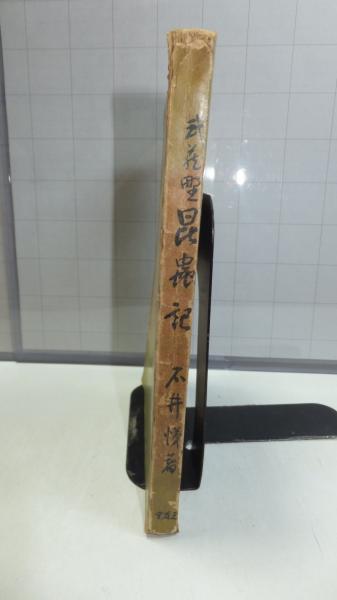 武蔵野昆蟲記 石井悌著